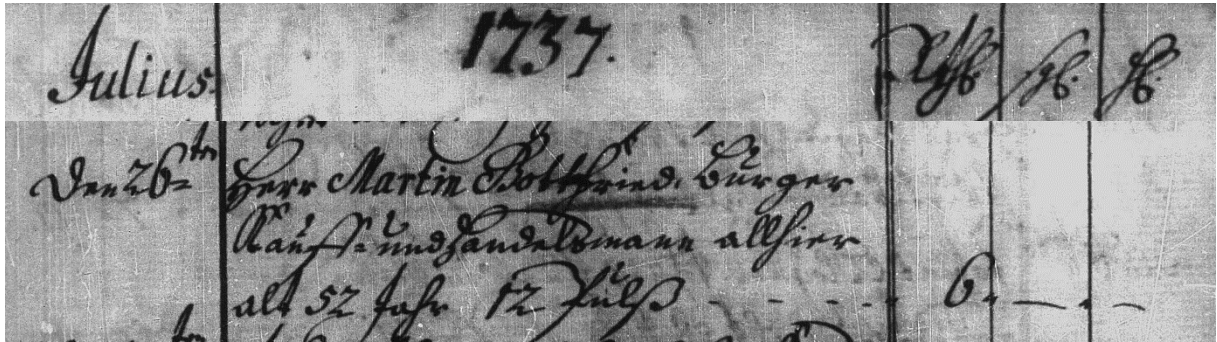 Julius. 1737. Rthl. sgl. hl.
Den 26ten Herr Martin Gottfried. Bürger
Kauff- und Handelsmann allhier
alt 52 Jahr 12 Pulß - - - - - 6. — . —